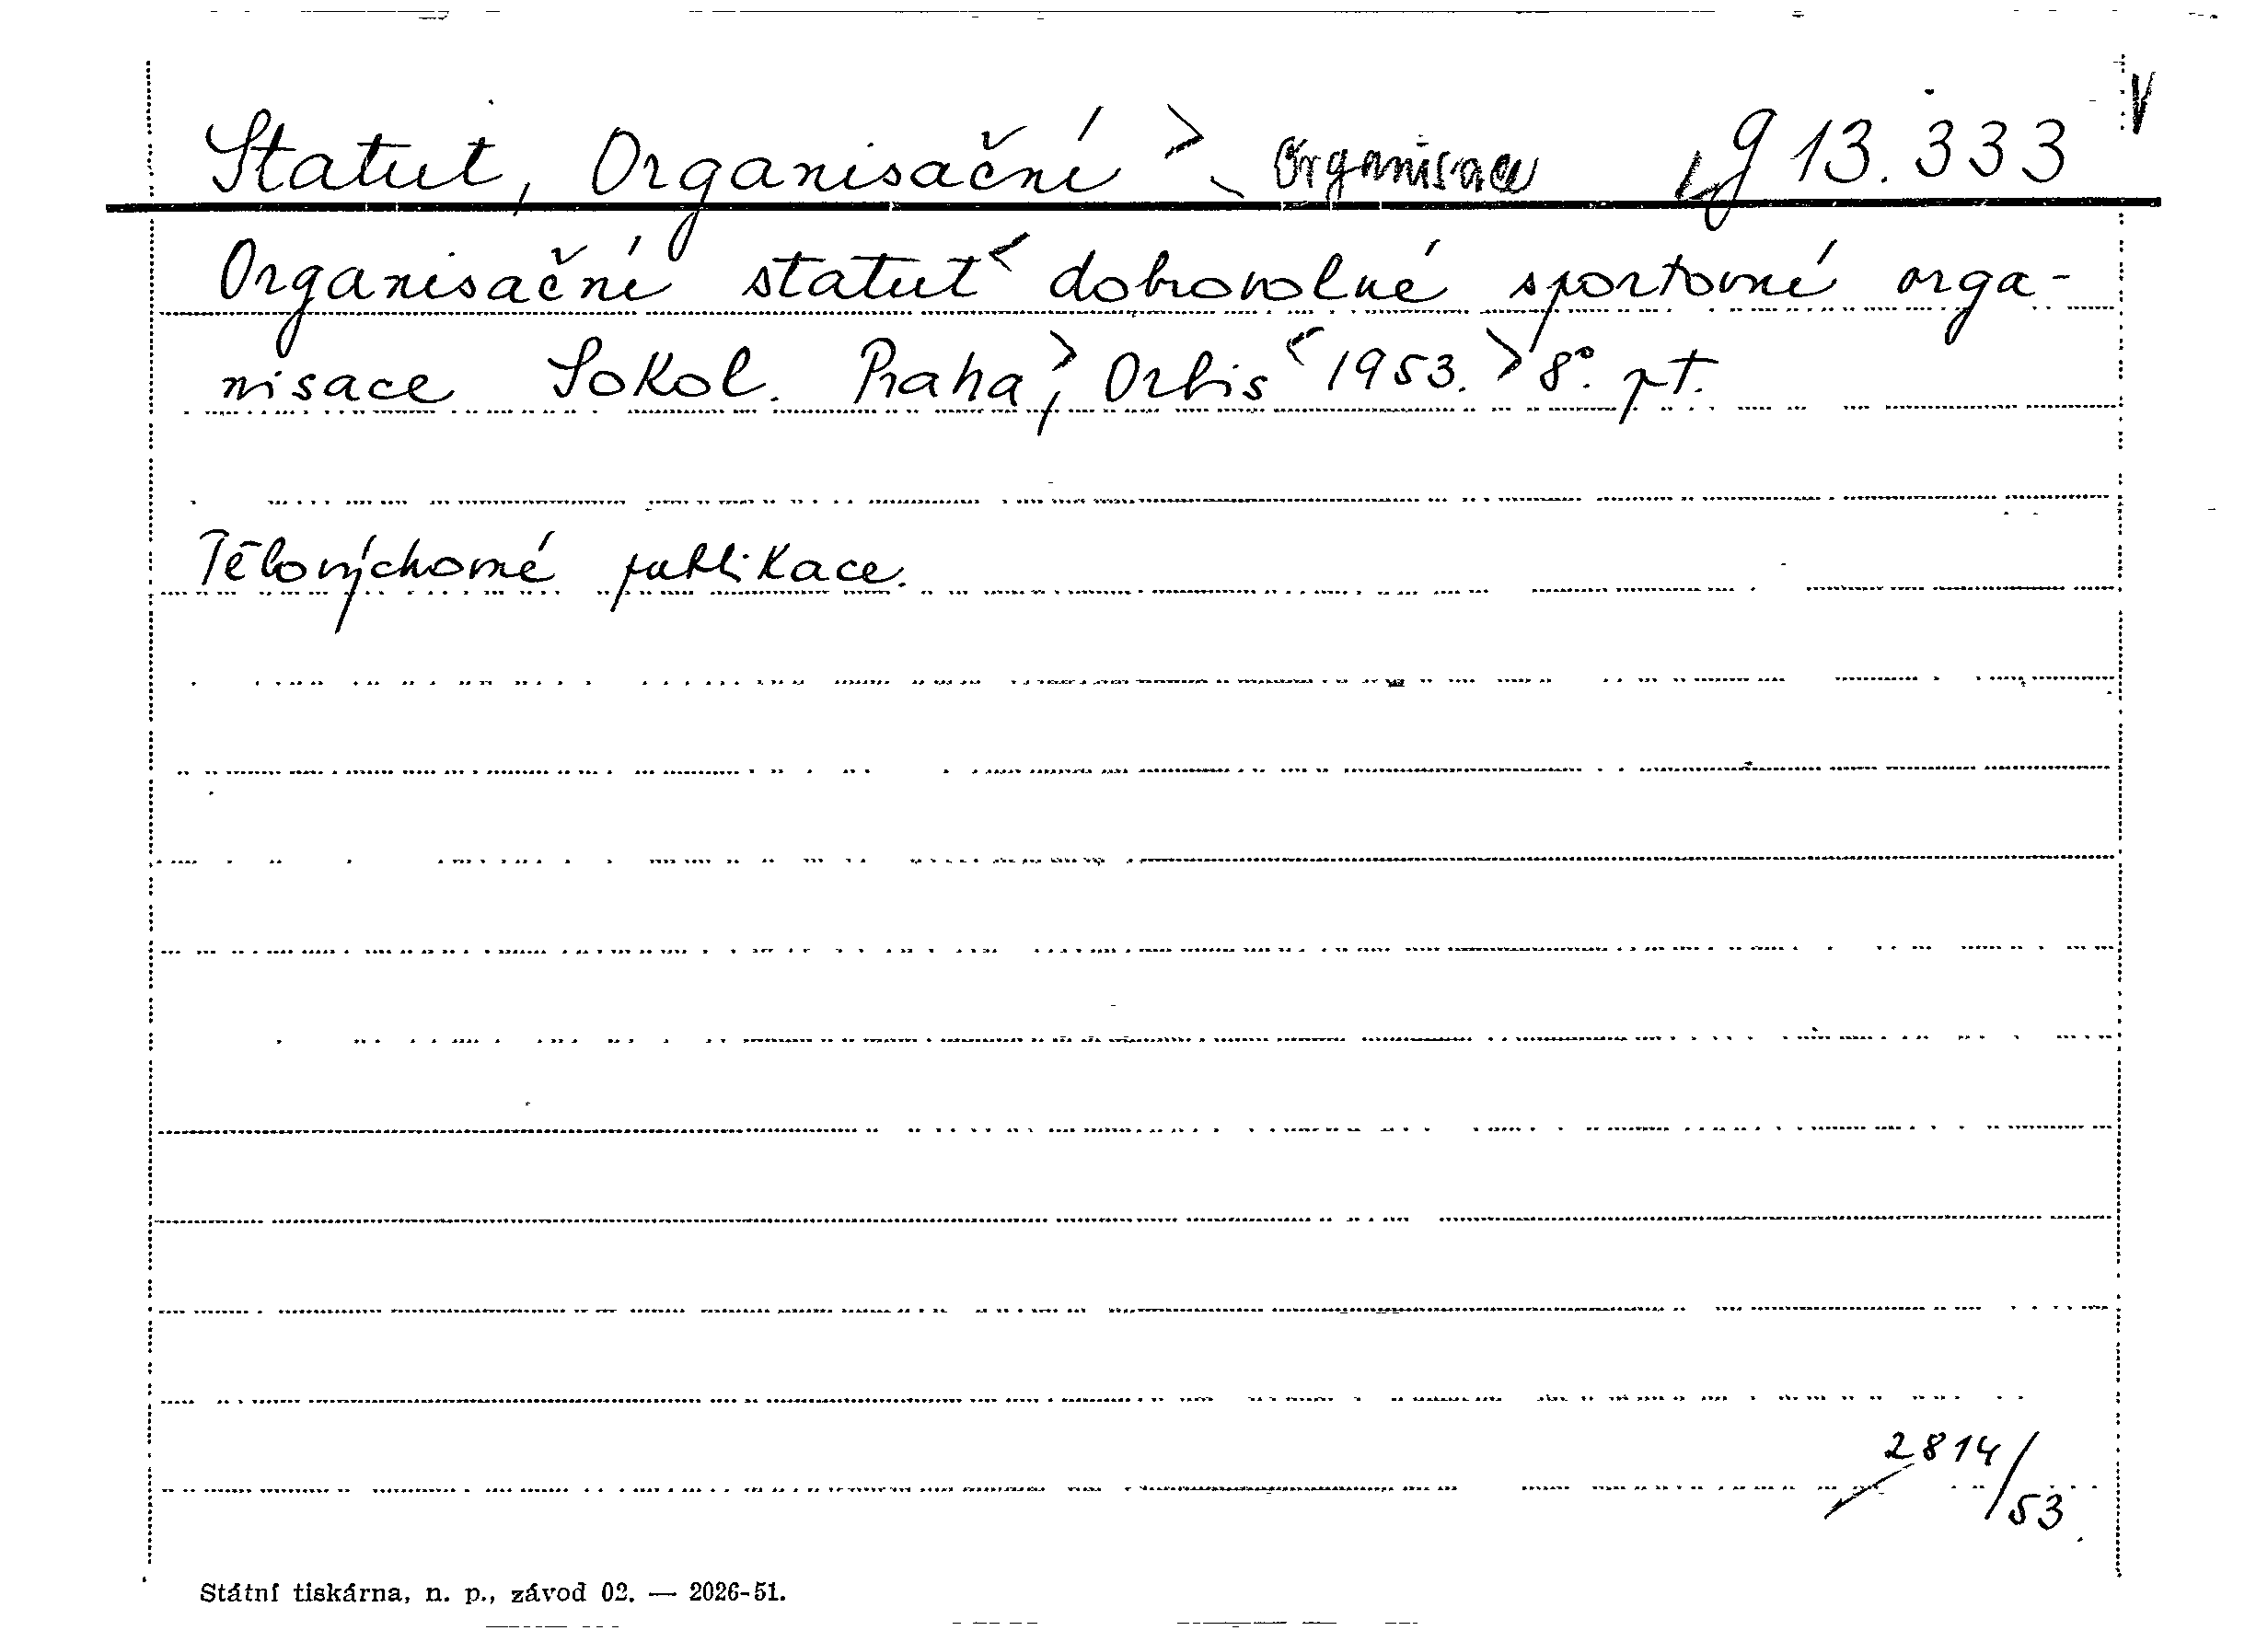 Statut, Organisační > < organisace g 13.333 V
Organisační statut < dobrovolné sportovní orga-
nisace Sokol. Praha >, Orbis < 1953. > 8°. pt.
Tělovýchovné publikace.
2814/53.
Státní tiskárna, n. p., závod 02. — 2026-51.